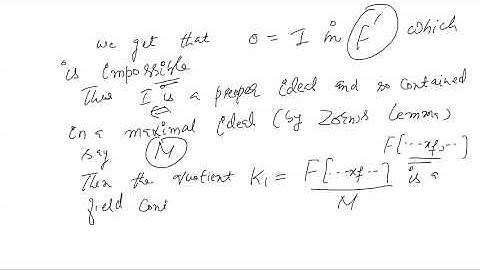 we get that 0 = 1 in F' which
is impossible
Thus I is a proper ideal and so contained
in a maximal ideal (by Zorn's Lemma)
say M F[...x_f...]
Then the quotient K₁ = F[...x_f...] / M is a
field coni